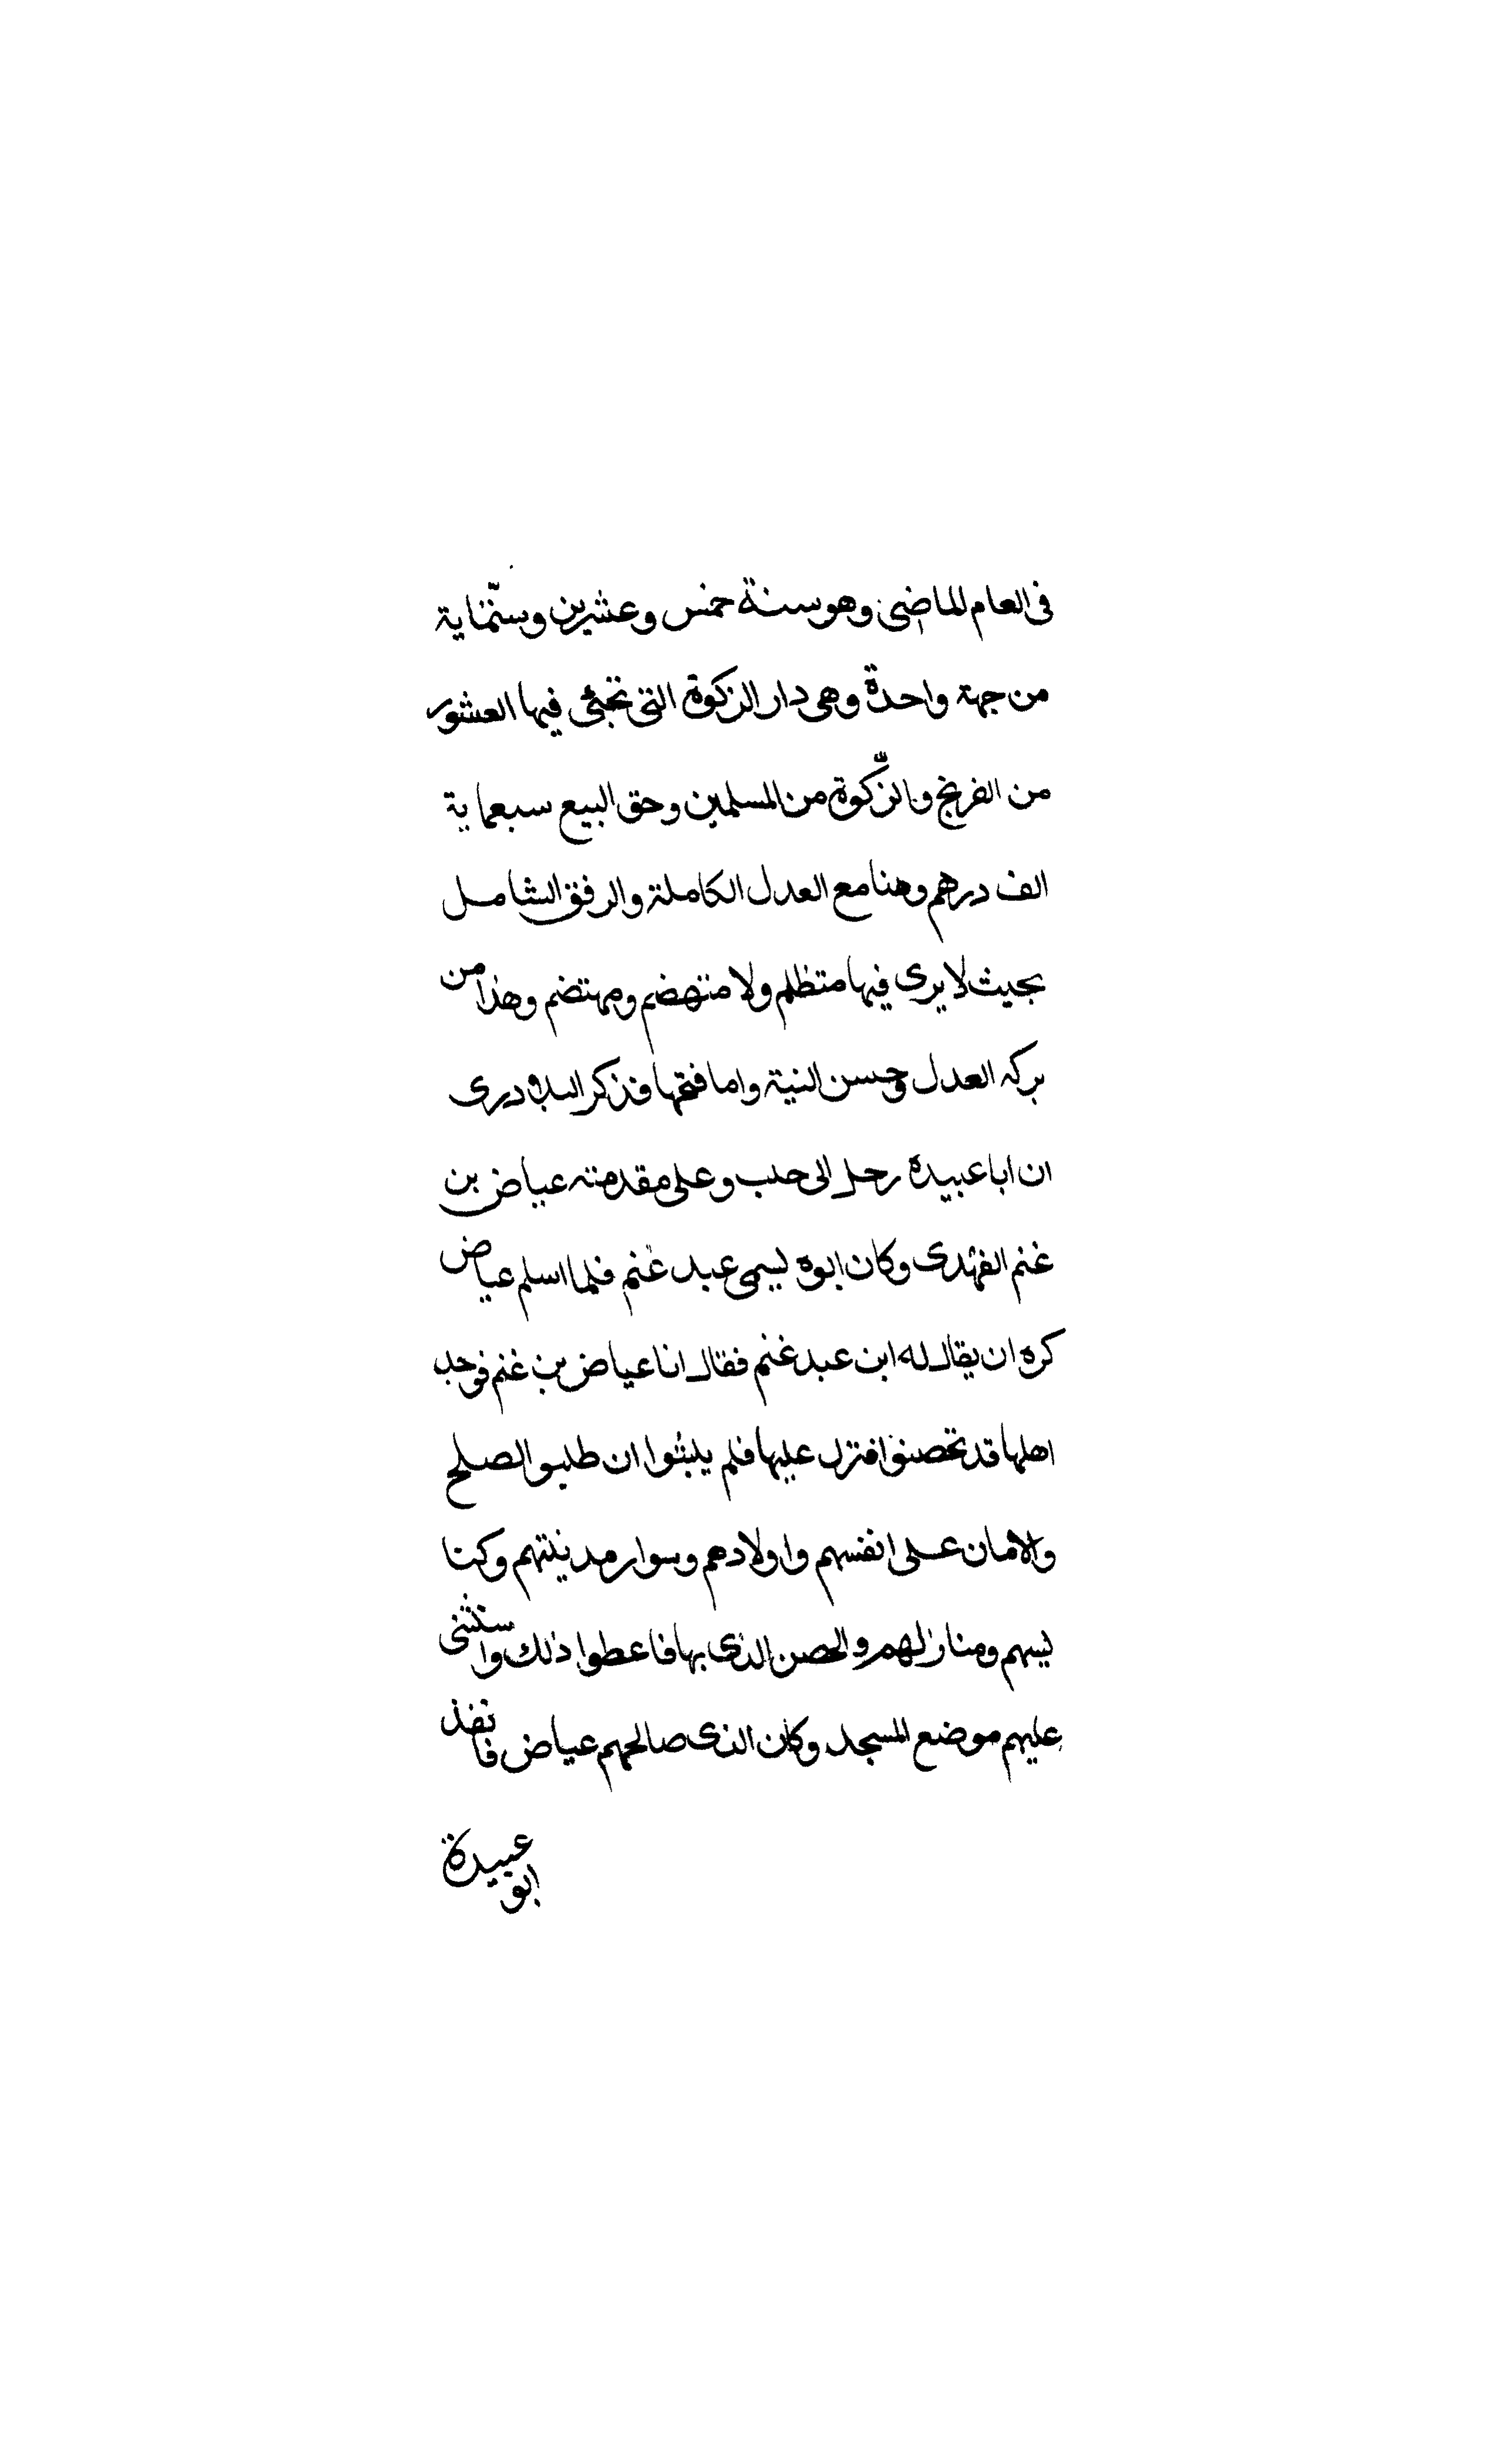 فى العام الماضى وهو سنة خمس وعشرين وستماية
من جهة واحدة وهى دار الزكوة التى تجبئ فيها العشور
من الفرنج والزّكوة من المسلمين وحق البيع سبعماية
الف درهم وهنا مع العدل الكاملة والرفق الشامل
بحيث لا يرى فيها متظلم ولا متهضم ومهتضم وهذا من
بركه العدل وحسن النية واما فتحها فذكر البلاودرى
ان ابا عبيده رحل الى حلب وعلى مقدمته عياض بن
غنم الفهدى وكان ابوه يسمى عبد غنم فلما اسلم عياض
كره ان يقال له ابن عبد غنم فقال انا عياض بن غنم فوجد
اهلها قد تحصنوا فنزل عليها فلم يلبثوا ان طلبو الصلح
والامان على انفسهم واولادهم وسوار مدينتهم وكنا
يسهم ومنازلهم والحصن الذى بها فاعطوا ذلك واستثنى
عليهم موضع المسجد وكان الذى صالحهم عياض فانفذ
ابو عبيدة